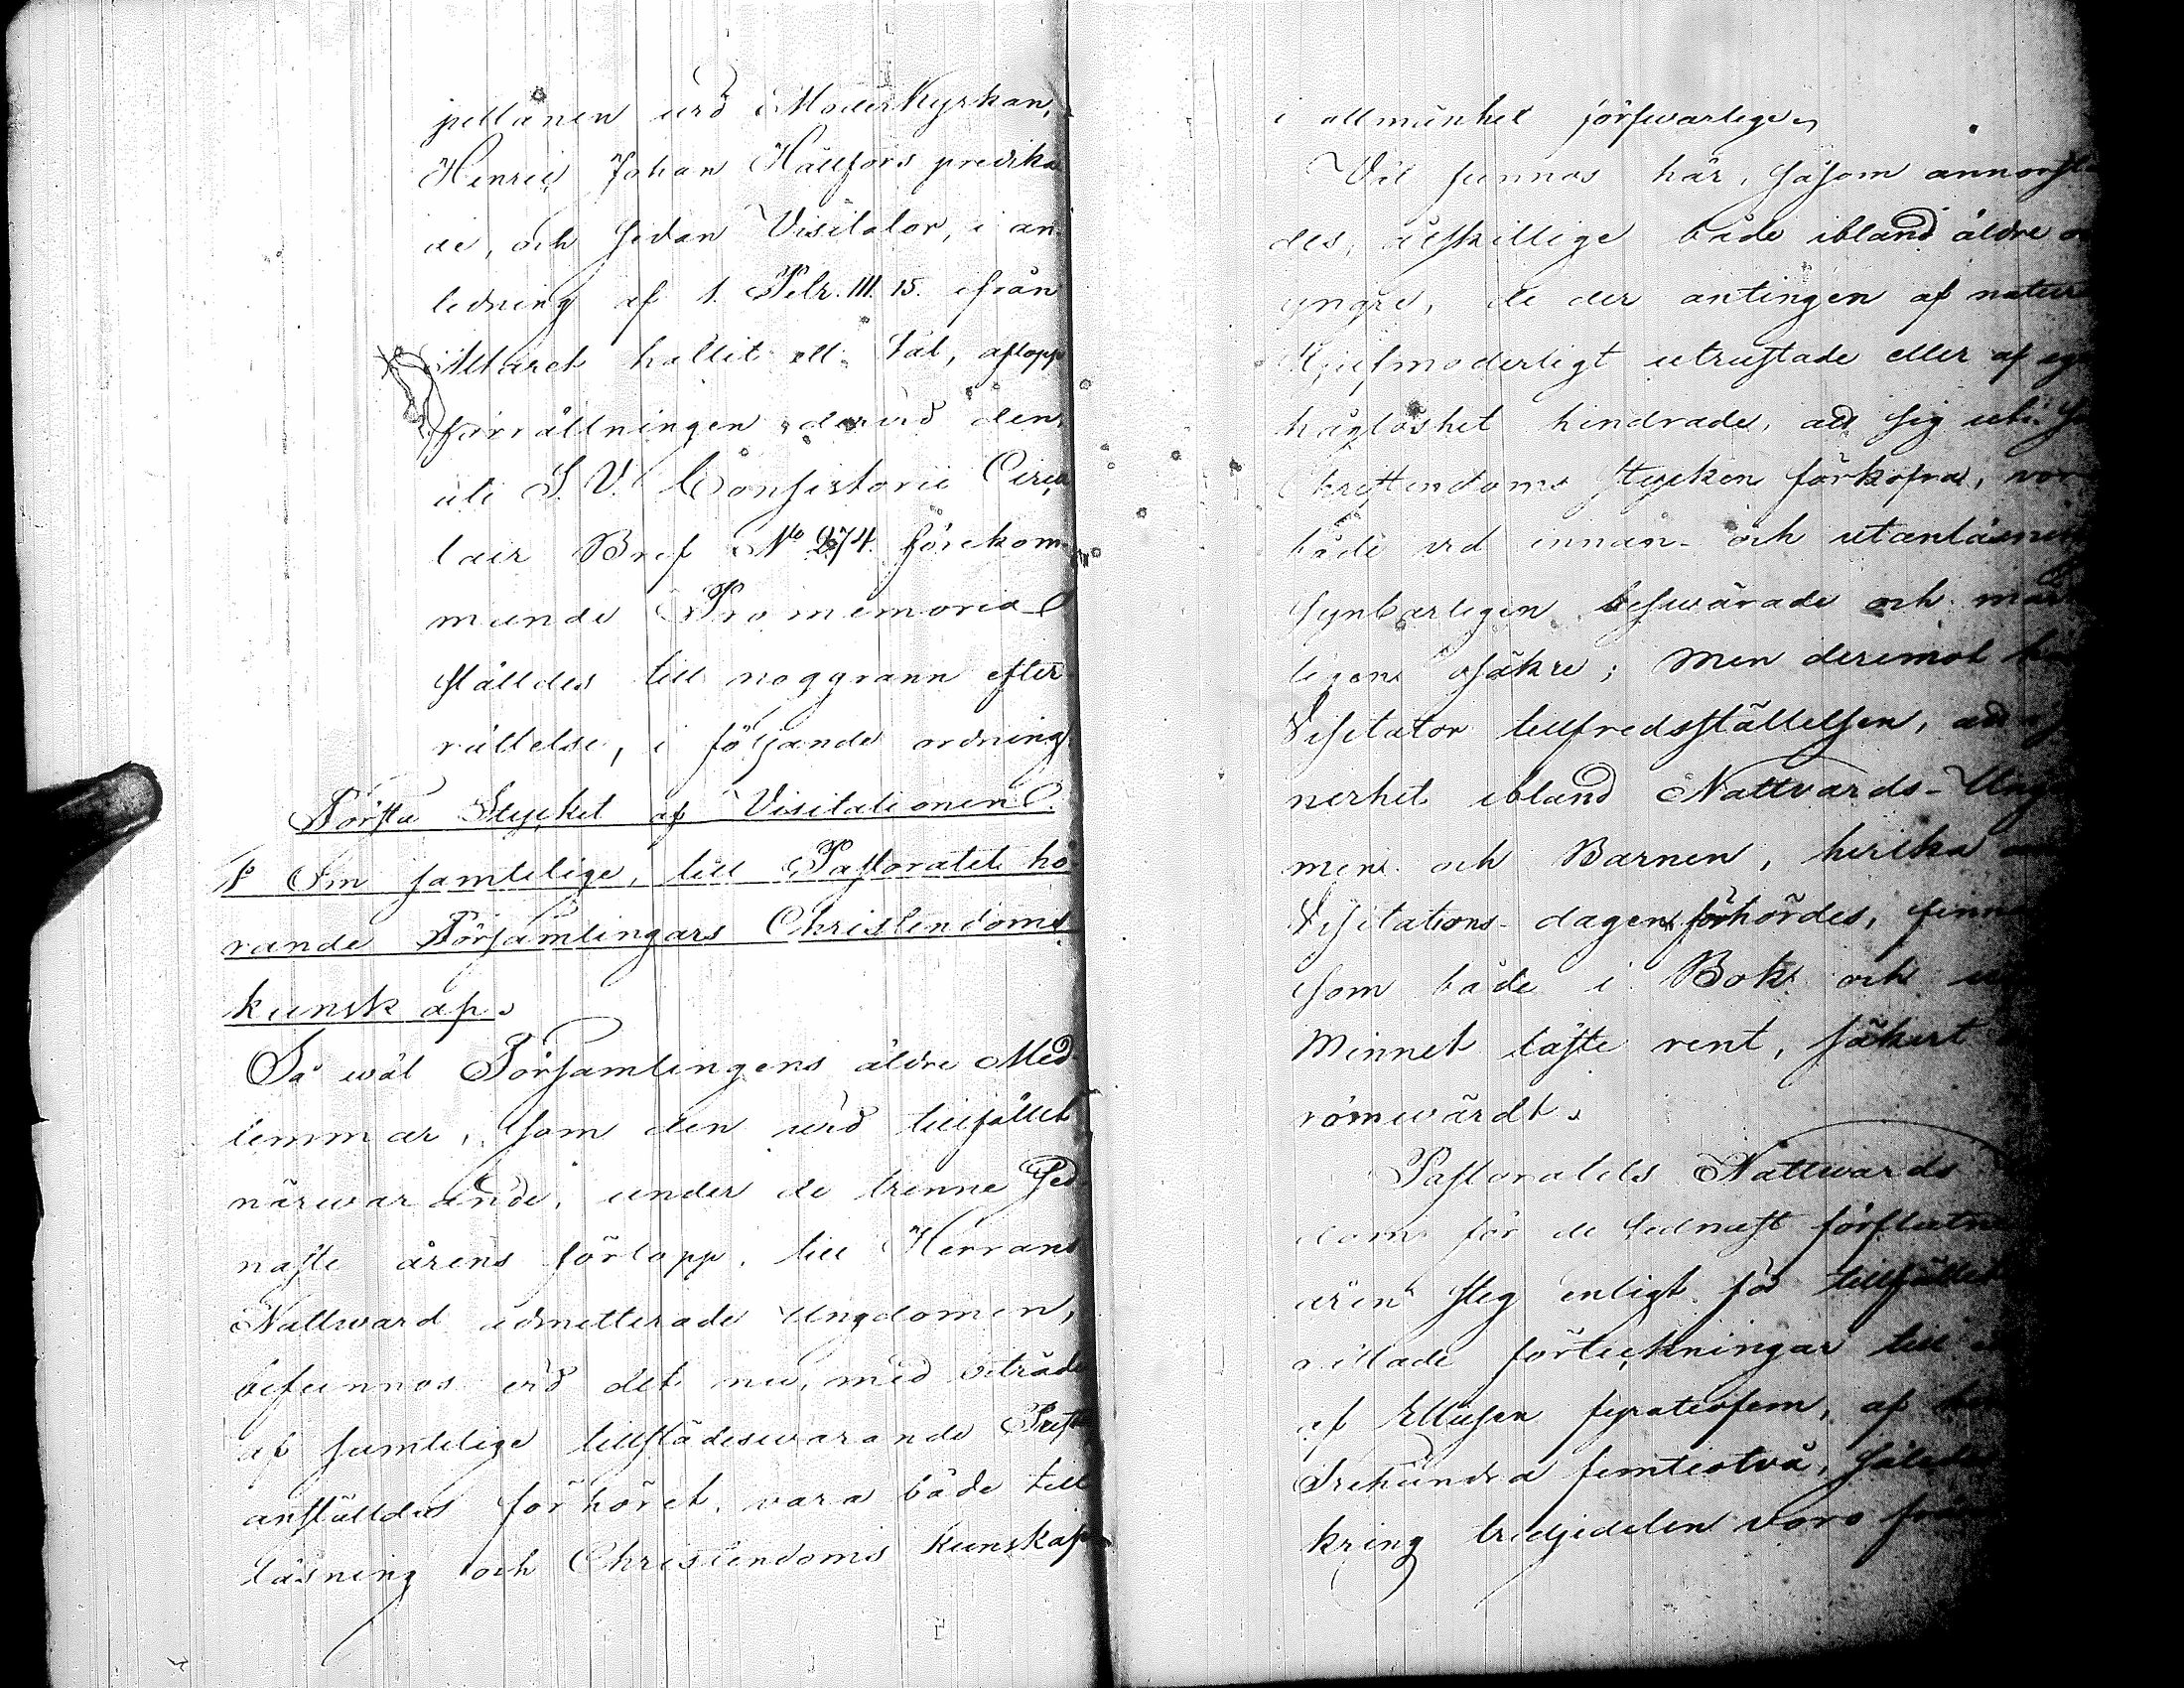 pellanen wid Moderkyrkan,
Henric Johan Hällfors predika
de, och sedan Visitator, i an
ledning af 1. Petr. III. 15. ifrån
Altaret hållit ett tal, aflopp
förrättningen derwid den
uti S. V. Consistorii Circu
lair Bref No 274. förekom
mande Promemoria
ställdes till noggrann efter
rättelse, i följande ordning
Första Stycket af Visitationen.
1o Om samtelige, till Pastoratet hö
rande Församlingars Christendoms
kunskap.
Så wäl Församlingens äldre Med
lemmar, som den wid tillfället
närwarande, under de trenne sed
naste årens förlopp, till Herrans
Nattward admitterade Ungdomen,
befunnos wid det nu, med biträde
af samtelige tillstädeswarande Prest
anställdes förhöret, vara både till
läsning och Christendoms kunskap
i allmänhet försvarlige.
Väl funnos här, såsom annorstä
des, åtskillige både ibland äldre
yngre, de der antingen af natur
stjufmoderligt utrustade eller af eg
håglöshet hindrade, att sig uti
Christendoms stycken förkofra, vor
både vid innan- och utanläsnin
synbarligen beswärade och
ligen osäkre; Men deremot
Visitator tillfredsställelsen, att
nerhet ibland Nattvards-Ung
men och Barnen, hvilka
Visitations-dagen förhördes, finna
som både i Bok och
Minnet läste rent, säkert
römwärdt.
Pastoratets Nattwards
dom för de sednast förflutne
åren steg enligt för tillfället
rättade förteckningar till
af Ellofsen fyratiofem, af
Trehundra femtiotvå, således
kring tredjedelen voro från